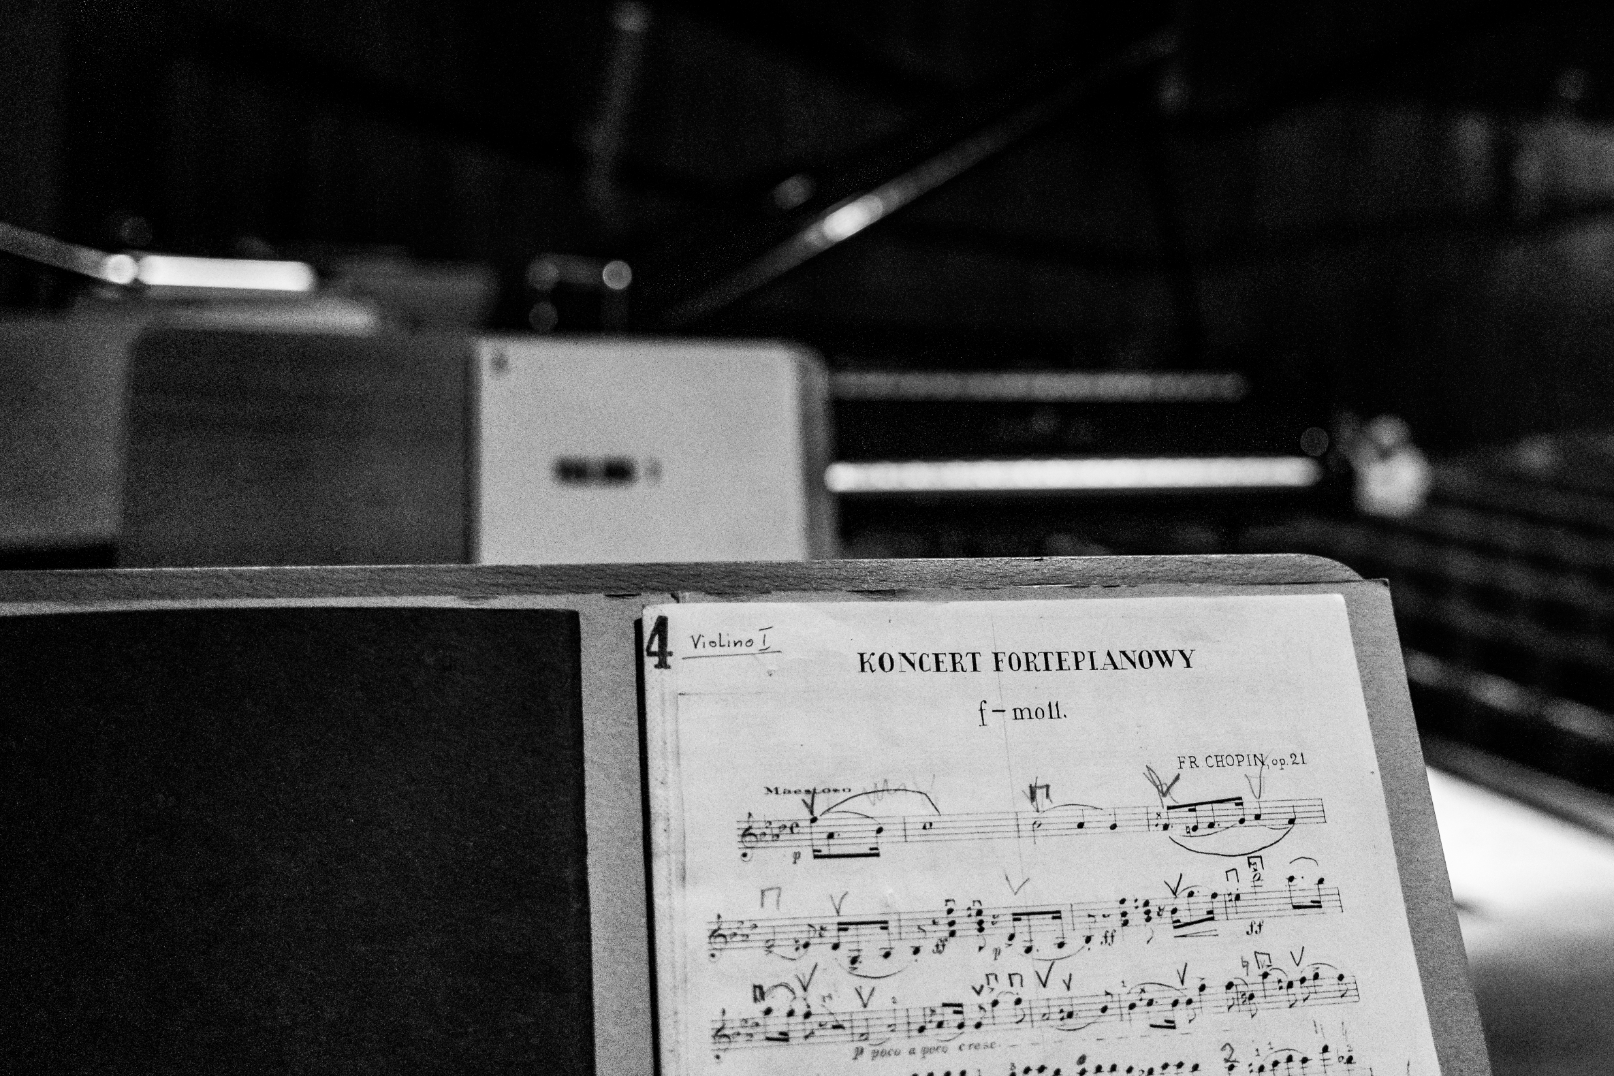 4 Violino I
KONCERT FORTEPIANOWY
f-moll.
FR CHOPIN, op.21
Maestoso
p
ff p ff ff
p poco a poco cresc.
2